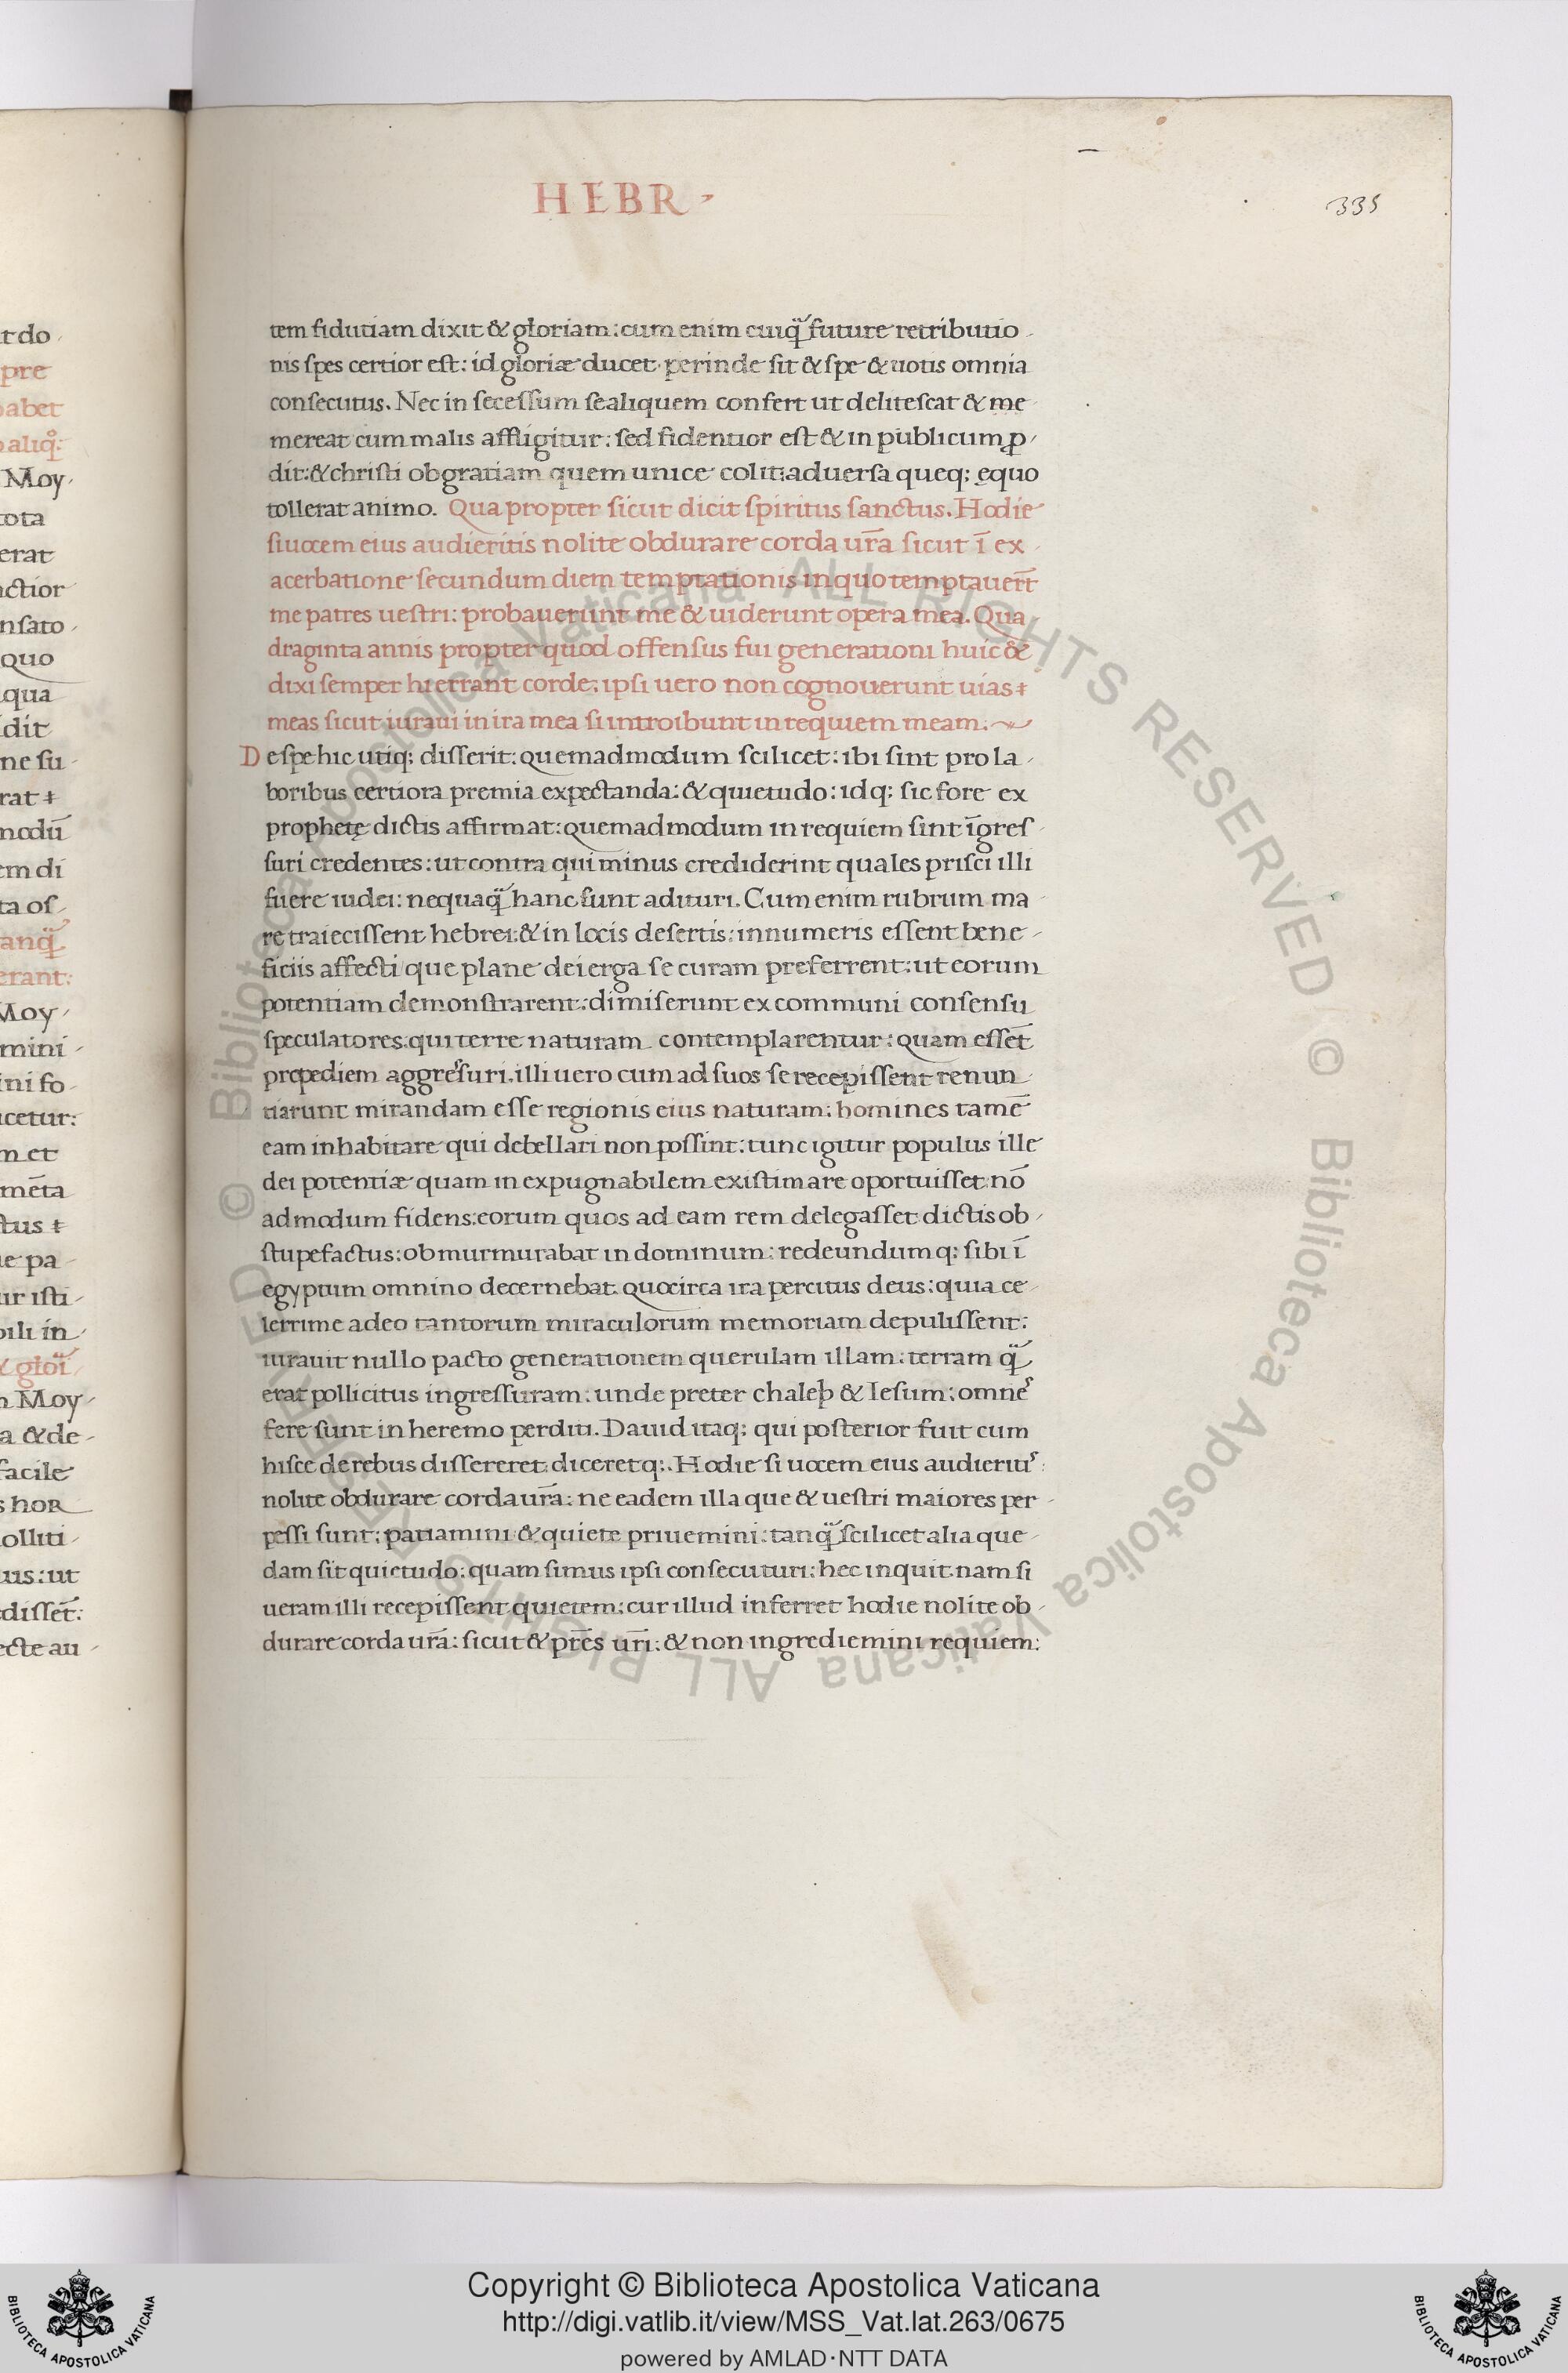 HEBR
335
tem fidutiam dixit & gloriam: cum enim cuiq̃ future retributio
nis spes certior est: id gloriæ ducet perinde sit & spe & uotis omnia
consecutus. Nec in secessum se aliquem confert ut delitescat & me
mereat cum malis affligitur: sed fidentior est & in publicum ꝓ
dit: & christi ob gratiam quem unice colit: aduersa queq; ęquo
tollerat animo. Qua propter sicut dicit spiritus sanctus. Hodie
si uocem eius audieritis nolite obdurare corda ur̄a sicut ī ex
acerbatione secundum diem temptationis in quo temptauer̄t
me patres uestri: probauerunt me & uiderunt opera mea. Qua
draginta annis propter quod offensus fui generationi huic &
dixi semper hi errant corde: ipsi uero non cognouerunt uias
meas sicut iuraui in ira mea si introibunt in requiem meam.
De spe hic utiq; disserit: quemadmodum scilicet: ibi sint pro la
boribus certiora premia expectanda: & quietudo: idq; sic fore ex
prophetę dictis affirmat: quemadmodum in requiem sint īgres
suri credentes: ut contra qui minus crediderint quales prisci illi
fuere iudei: nequaq̃ hanc sunt adituri. Cum enim rubrum ma
re traiecissent hebrei: & in locis desertis: innumeris essent bene
ficiis affecti que plane dei erga se curam preferrent: ut eorum
potentiam demonstrarent: dimiserunt ex communi consensu
speculatores: qui terre naturam contemplarentur: quam essēt
propediem aggressuri. illi uero cum ad suos se recepissent renun
tiarunt mirandam esse regionis eius naturam: homines tamē
eam inhabitare qui debellari non possint: tunc igitur populus ille
dei potentiæ quam inexpugnabilem existimare oportuisset nō
admodum fidens: eorum quos ad eam rem delegasset dictis ob
stupefactus: obmurmurabat in dominum: redeundumq; sibi ī
egyptum omnino decernebat. quocirca ira percitus deus: quia ce
lerrime adeo tantorum miraculorum memoriam depulissent:
iurauit nullo pacto generationem querulam illam: terram q̃
erat pollicitus ingressuram: unde preter chaleph & Iesum: omnes
fere sunt in heremo perditi. Dauid itaq; qui posterior fuit cum
hisce de rebus dissereret: diceretq;. Hodie si uocem eius audieritis:
nolite obdurare corda ur̄a: ne eadem illa que & uestri maiores per
pessi sunt: patiamini & quiete priuemini: tanq̃ scilicet alia que
dam sit quietudo: quam simus ipsi consecuturi: hec inquit. nam si
ueram illi recepissent quietem: cur illud inferret hodie nolite ob
durare corda ur̄a: sicut & pr̄es ur̄i: & non ingrediemini requiem:
Copyright © Biblioteca Apostolica Vaticana
http://digi.vatlib.it/view/MSS_Vat.lat.263/0675
powered by AMLAD·NTT DATA